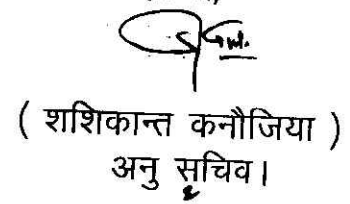 ( शशिकान्त कनौजिया )
अनु सचिव।